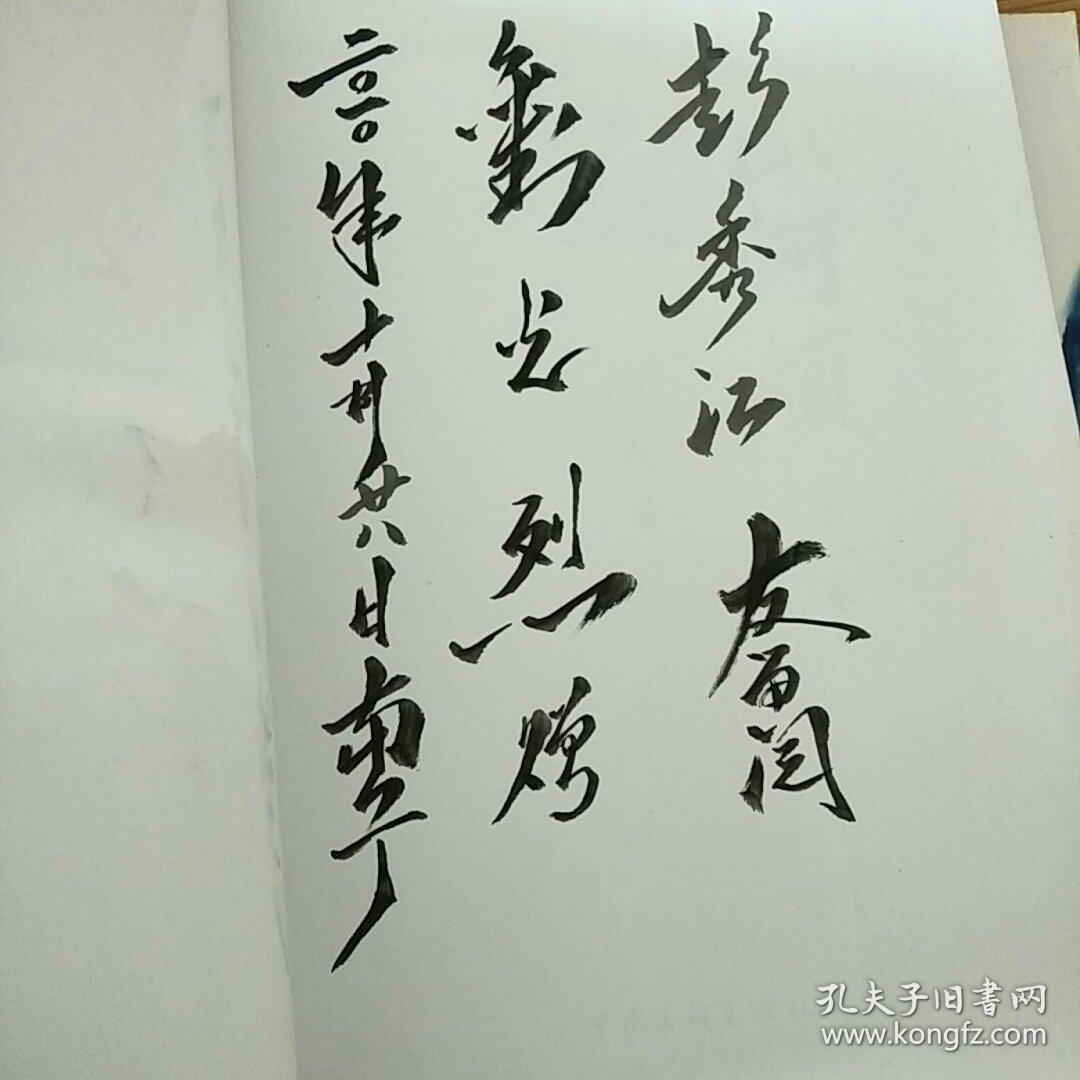 彭秀江友留阅
劉光烈赠
二〇一〇年十月廿八日南宁
孔夫子旧書网
www.kongfz.com